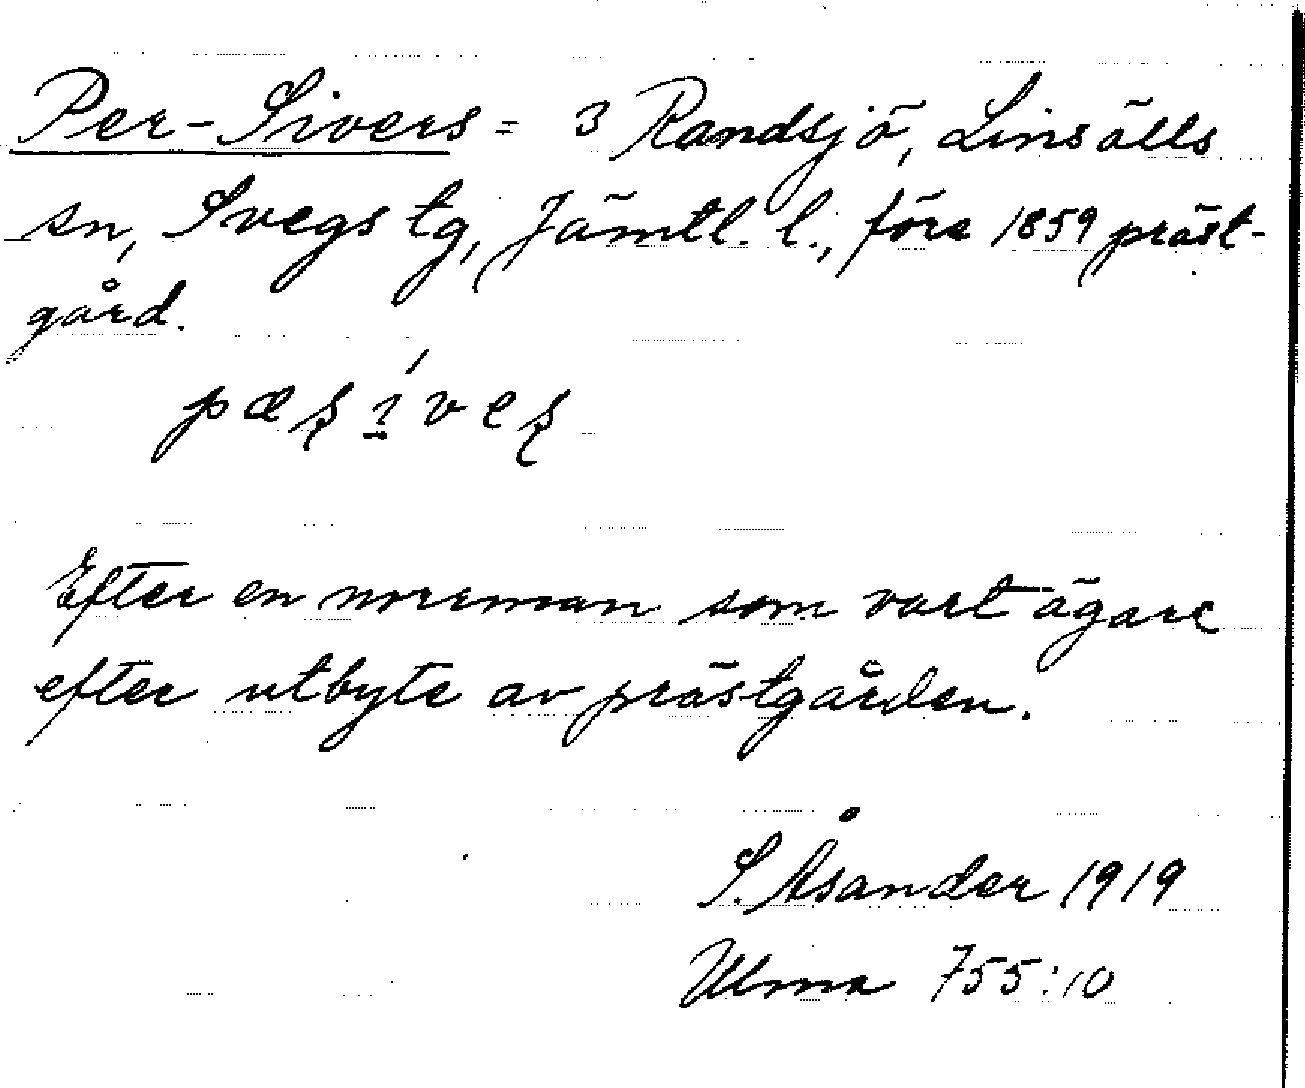 Per-Sivers = 3 Randsjö, Linsälls
sn, Svegs tg, Jämtl. l., före 1859 präst-
gård.
Efter en norrman som vart ägare
efter utbyte av prästgården.
S. Åsander 1919
Ulma 755:10